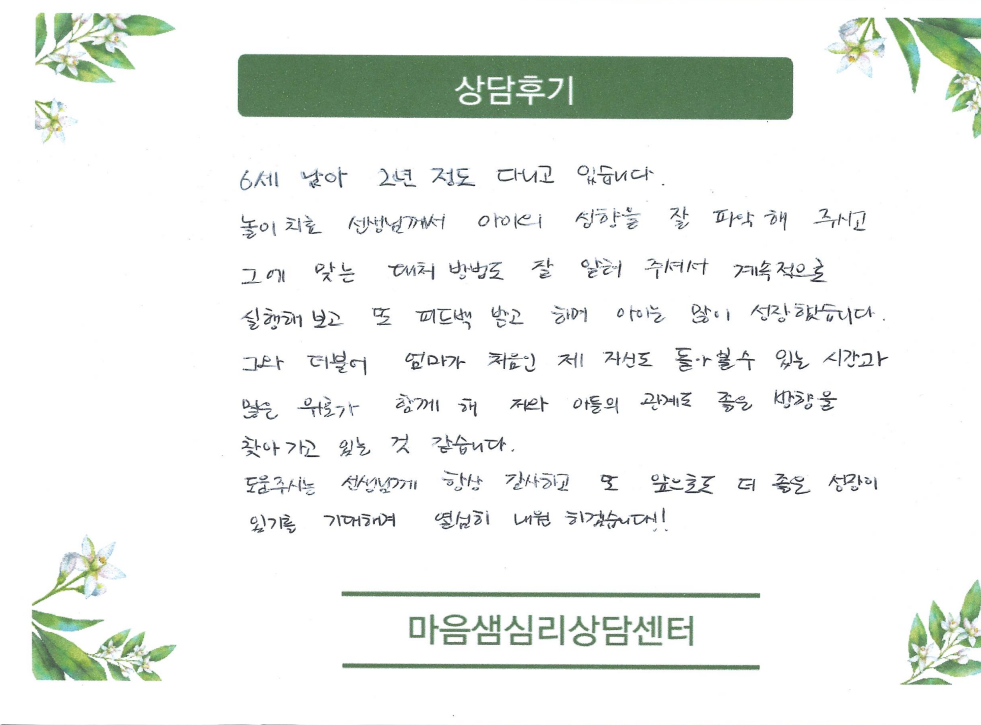 상담후기
6세 남아 2년 정도 다니고 있습니다.
놀이치료 선생님께서 아이의 성향을 잘 파악해 주시고
그에 맞는 대처 방법도 잘 알려 주셔서 계속적으로
실행해 보고 또 피드백 받고 하며 아이는 많이 성장했습니다.
그와 더불어 엄마가 처음인 제 자신도 돌아볼 수 있는 시간과
많은 위로가 함께 해 저와 아들의 관계도 좋은 방향을
찾아가고 있는 것 같습니다.
도움주시는 선생님께 항상 감사하고 또 앞으로도 더 좋은 성장이
있기를 기대하며 열심히 내원 하겠습니다!!
마음샘심리상담센터